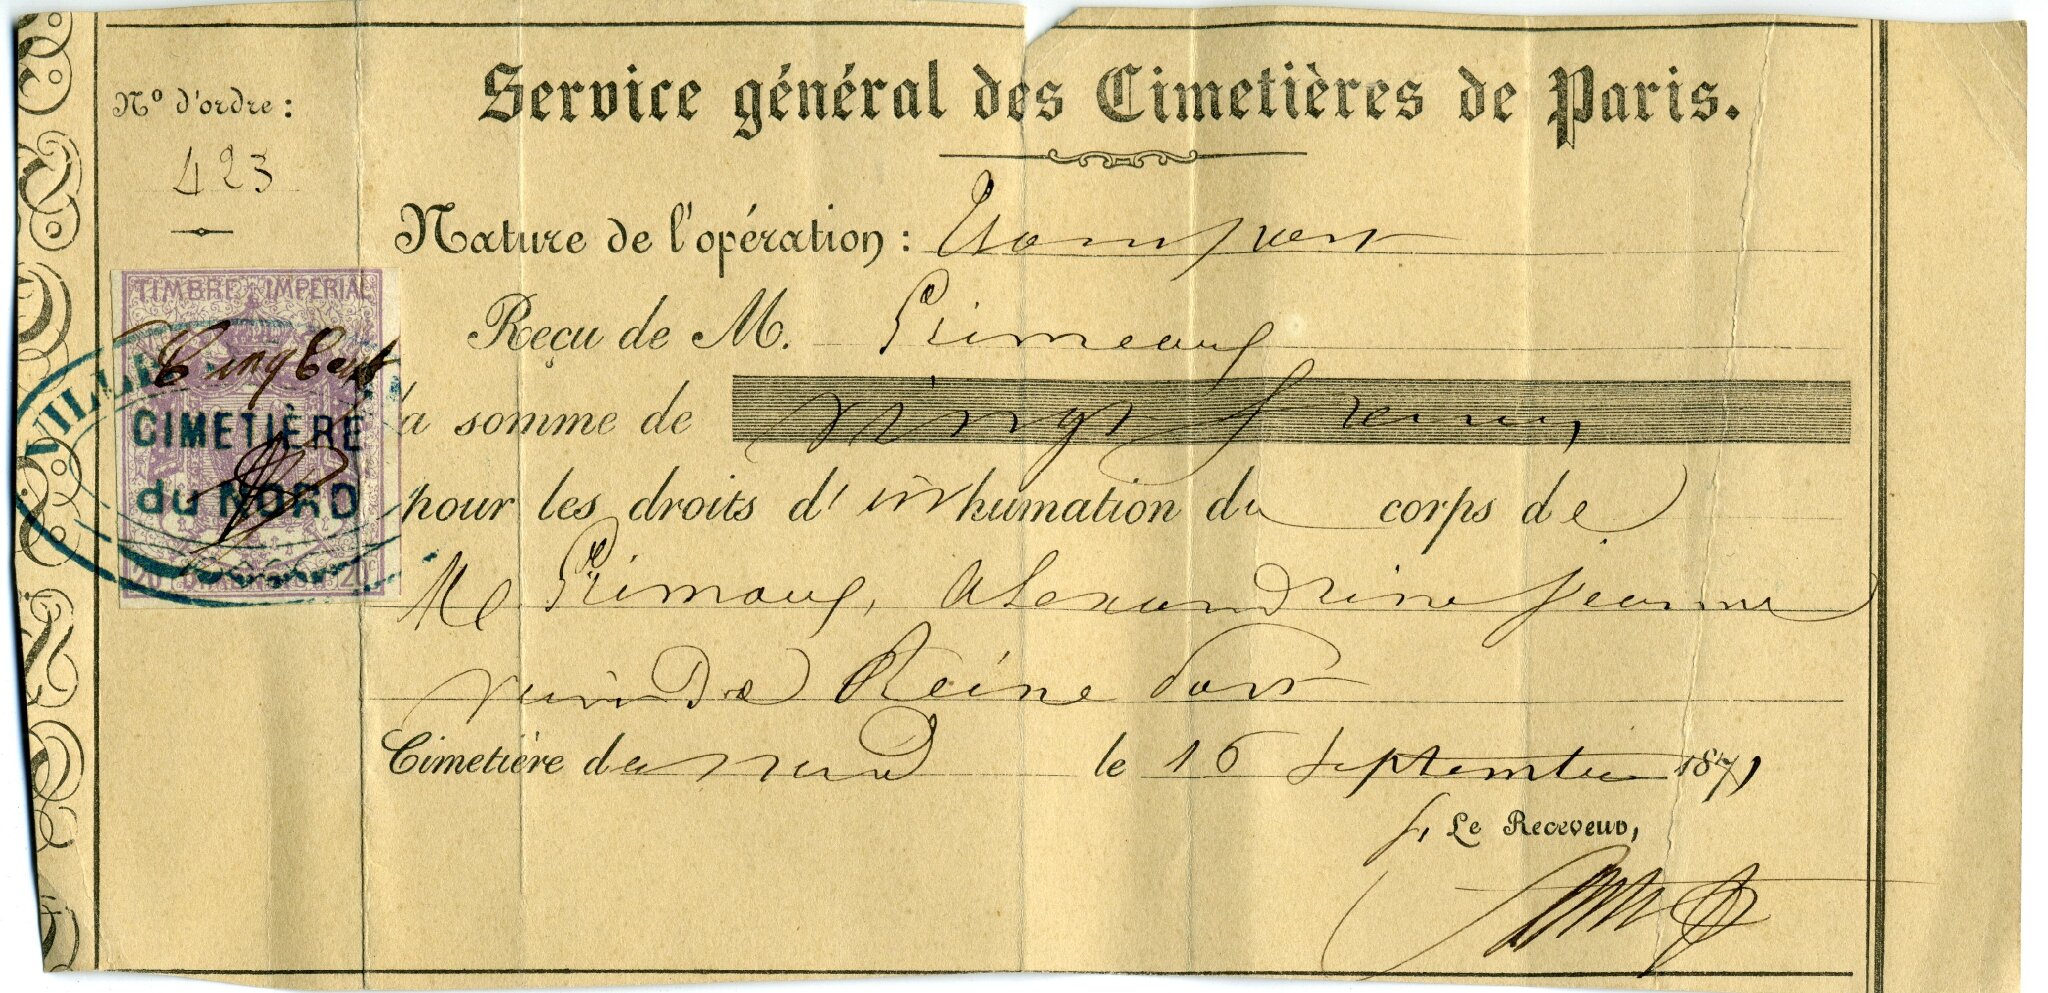 Nº d'ordre :
423
Service général des Cimetières de Paris.
Nature de l'opération : Transport
Reçu de M. Primeaux
la somme de vingt francs
pour les droits d'inhumation du corps de
Me Primaux, Alexandrine Jeanne
veuve De Reine
Cimetière du nord le 16 Septembre 1871
p. Le Receveur,
TIMBRE IMPERIAL
VILLE
Cinq Cent
CIMETIÈRE
du NORD
20 20c